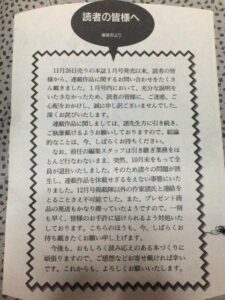 読者の皆様へ
編集部より
11月26日売りの本誌1月号発売以来、読者の皆
様から、連載作品に関するお問い合わせをたくさ
ん戴きました。1月号内において、充分な説明を
いたさなかったため、読者の皆様に、ご迷惑、ご
心配をおかけし、誠に申し訳ございませんでした。
深くお詫びいたします。
連載作品に関しましては、諸先生方に引き続き、
ご執筆戴けるようお願いしておりますので、結論
的なことは、今、しばらくお待ちください。
なお、前任の編集スタッフは引き継ぎ業務をほ
とんど行なわないまま、突然、10月末をもって全
員が退社いたしました。そのため諸々の問題が派
生し、連載作品を休載せざるをえない事態にいた
りました。12月号掲載時以外の作家諸氏と連絡を
とることさえ不可能でした。また、プレゼント商
品の発送もかなり滞っていたようですので、一刻
も早く、皆様のお手許に届けられるよう対処いた
しております。こちらのほうも、今、しばらくお待
ち戴きたくお願い申し上げます。
今後も、おもしろく読み応えのある本づくりに
頑張りますので、ご感想などお寄せ戴ければ幸い
です。これからも、よろしくお願いいたします。